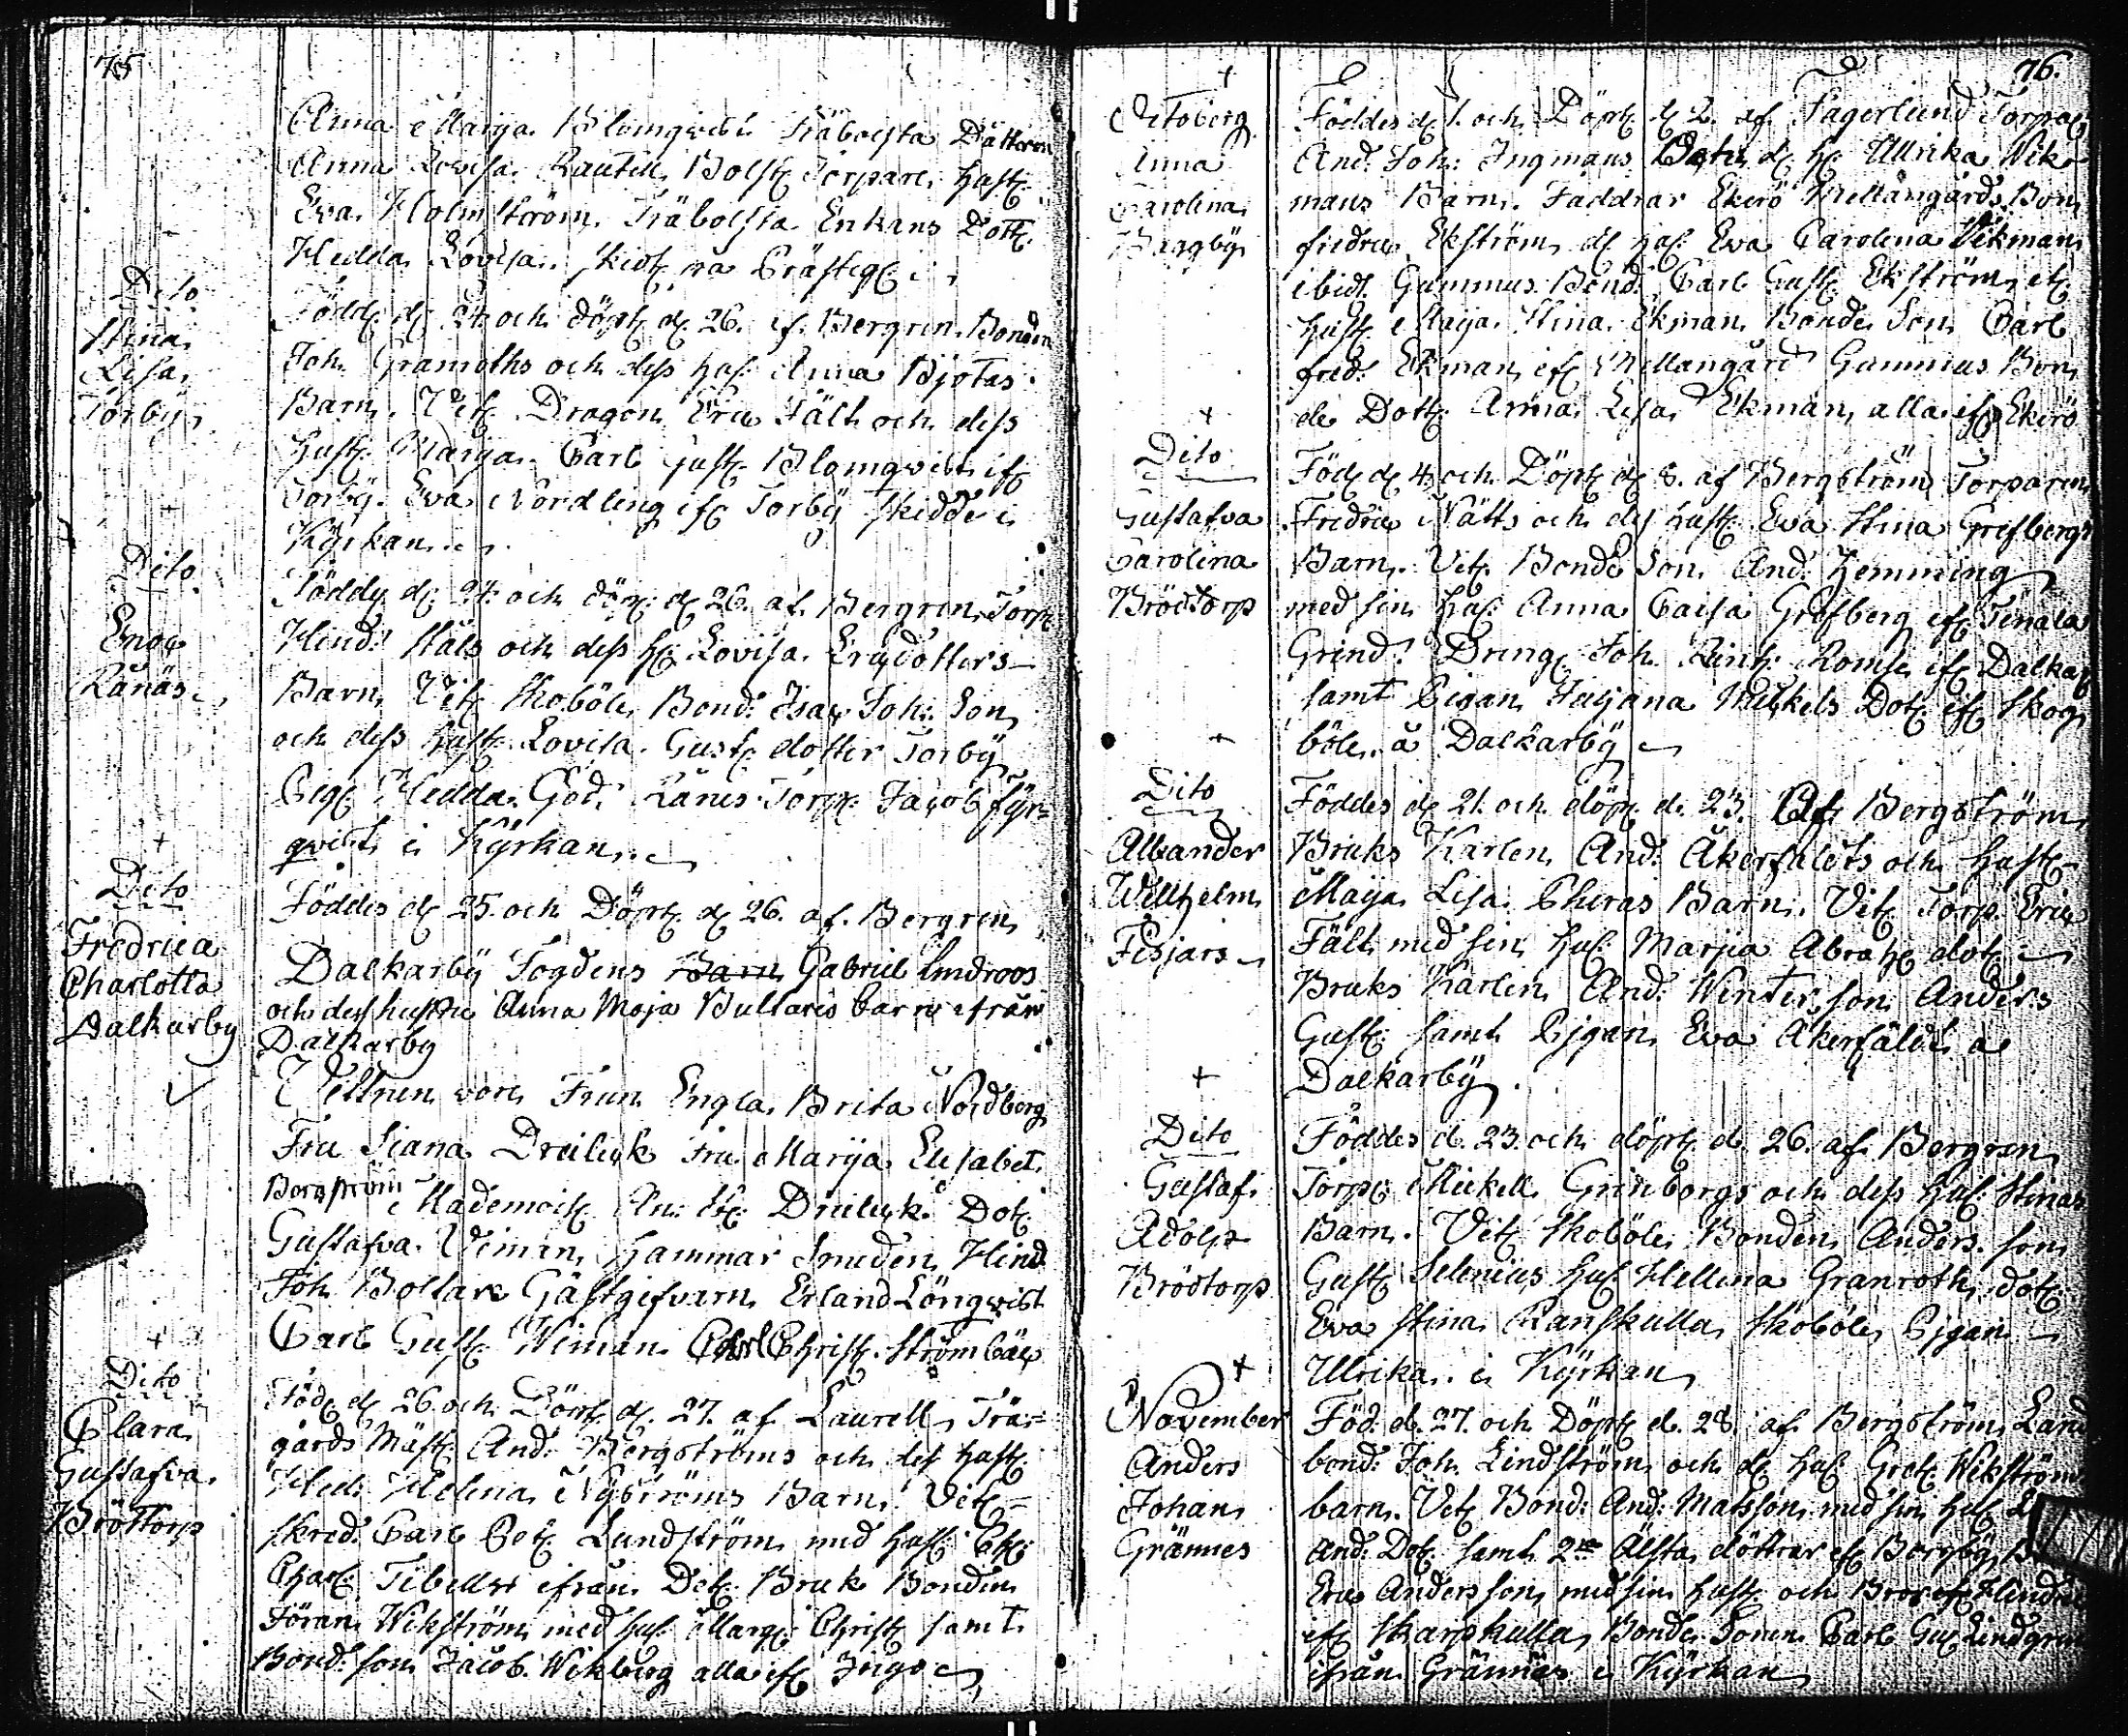 75
Anna Maija Blomqvist Träbolsta Dätteren
Anna Lovisa Rautell Bolst Torpare hust
Eva Holmström Träbolsta Enkans Dott
Hedda Lovisa. skedt pa Prästeg
Dito
Stina
Lisa
Torby
Född d 24 och döpt d 26. af Bergren Bonden
Joh. Granroths och dess hus Anna Bjotas
Barn. Vit Dragon Eric Fält och dess
hust Marja. Carl Gust Blomqvist if
Torby. Eva Nordling if Torby skedde i
Kyrkan
Dito
Enoc
Ranäs
Föddes d 24 och döp d 26 af Bergren Torp
Hind: Stals och dess h Lovisa Ersdotters
Barn, Vit Skoböle Bond: Isac Joh: Son
och dess hust Lovisa Gust dotter Torby
Pig Hedda God: Ranes Torp: Jacob fyr=
qvist i Kyrkan
Dito
Fredrica
Charlotta
Dalkarby
Föddes d 25 och Döpt d 26. af Bergren
Dalkarby Fogdens Barn Gabriel Lindroos
och des hustru Anna Maja Bullars barn ifrån
Dalkarby
Vittnen vore Frun Engla Brita Nordberg
Fru Siana Dreilick Fru Marija Elisabet
Bergström Mademois Dreilick Dot
Gustafva Viman, hammar Smeden Hind
Joh Bollare Gästgifvarn Erland Löngqvist
Carl Gust Wiman Carl Christ. Strömbäc
Dito
Clara
Gustafva
Bröttorp
Född d 26 och Döpt d. 27. af Laurell Trä=
gårds Mäst And: Bergströms och des hust
Hed: Helena Nyströms Barn. Vit
skred. Carl Pet Lundström med hus
Char: Tibeller ifrån Det Bruk Bonden
Jöran Wikström med hus Marg: Christ samt
Bond: son Jacob Wikberg alla if Ingo
76.
Octoberg
Anna
Carolina
Bragby
Föddes d 1. och Döpt d 2. af Fagerlund Torpar
And: Joh: Ingmans d h Ullrika Wik
mans Barn. Faddrar Ekerö Mellangårds Bon
fredric Ekström d hus Eva Carolina Vikman
ibid. Gammus Bond: Carl Gust Ekström et
hust Maija Stina Ekman Bonde Son Carl
fred: Ekman if Mellangård Gammus Bon
de Dott Anna Lisa Ekman, alla if Ekerö
Dito
Gustafva
Carolina
Brödtorp
Föd d 4 och Döpt d 8. af Bergström Torparen
Fredric Nätts och des hust Eva Stina Grefbergs
Barn. Vit Bonde Son And: Hemming
med sin hus Anna Caisa Grefberg if Tenala
Grind: Dreng Joh: Romse if Dalkar
samt Pigan Juljana Mickels Dot if Skog
böle. a Dalkarby
Dito
Albander
Willhelm
Fisjars
Föddes d 21. och döpt d. 23. Af Bergström
Bruks Karlen And: Åkerfäldts och hust
Maija Lisa Barn. Vit Torp Eric
Fält med sin hus Marja Abrah dot
Bruks Karlen And: Winter, son Anders
Gust: samt Pigan Eva Åkerfäldt a
Dalkarby.
Dito
Gustaf
Adolp
Brödtorp
Föddes d. 23. och döpt d. 26. af Bergren
Torp: Mickell Grönborgs och dess hus Stinas
Barn. Vit Skoböle Bonden Anders son
Gust Selenius hus Hellena Granroth, dot
Eva Stina Ranskulla, Skoböle Pigan
Ulrika. i Kyrkan
November
Anders
Johan
Grännes
Föd d. 27. och Döpt d. 28 af Bergström Land
bond: Joh. Lindström och d hus Gret Wikström
barn. Vit Bond: And: Matsson med sin hus
And: Dot. samt 2ne Älsta döttrar if Borgby
Eric Andersson med sin hust och Bror
if Skarpkulla, Bonde Sonen Carl Gus Lindgren
ifrån Grännäs i Kyrkan